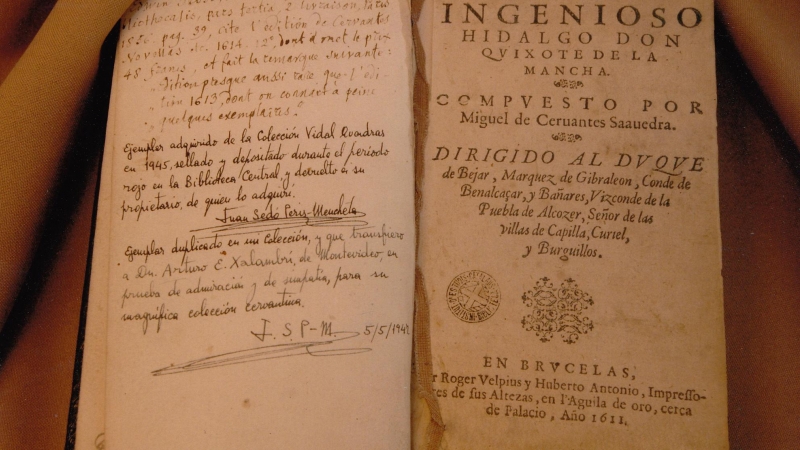 pág. 39, cite l'édition de Cervantes
Novellas 1614. 12º, dont
francs, et fait la remarque suivante:
édition presque aussi rare que l'édi-
tion 1613, dont on connait à peine
quelques exemplaires."
Ejemplar adquirido de la Colección Vidal Quadras
en 1945, sellado y depositado durante el periodo
rojo en la Biblioteca Central, y devuelto a su
propietario, de quien lo adquirí.
Juan Sedó Peris-Mencheta
Ejemplar duplicado en mi Colección, y que transfiero
a Dn. Arturo E. Xalambrí, de Montevideo, en
prueba de admiración y de simpatía, para su
magnífica colección cervantina.
J. S. P-M. 5/5/194
INGENIOSO
HIDALGO DON
QVIXOTE DE LA
MANCHA.
COMPVESTO POR
Miguel de Ceruantes Saauedra.
DIRIGIDO AL DVQVE
de Bejar, Marquez de Gibraleon, Conde de
Benalcaçar, y Bañares, Vizconde de la
Puebla de Alcozer, Señor de las
villas de Capilla, Curiel,
y Burguillos.
EN BRVCELAS,
r Roger Velpius y Huberto Antonio, Impresso-
res de sus Altezas, en l'Aguila de oro, cerca
de Palacio, Año 1611.